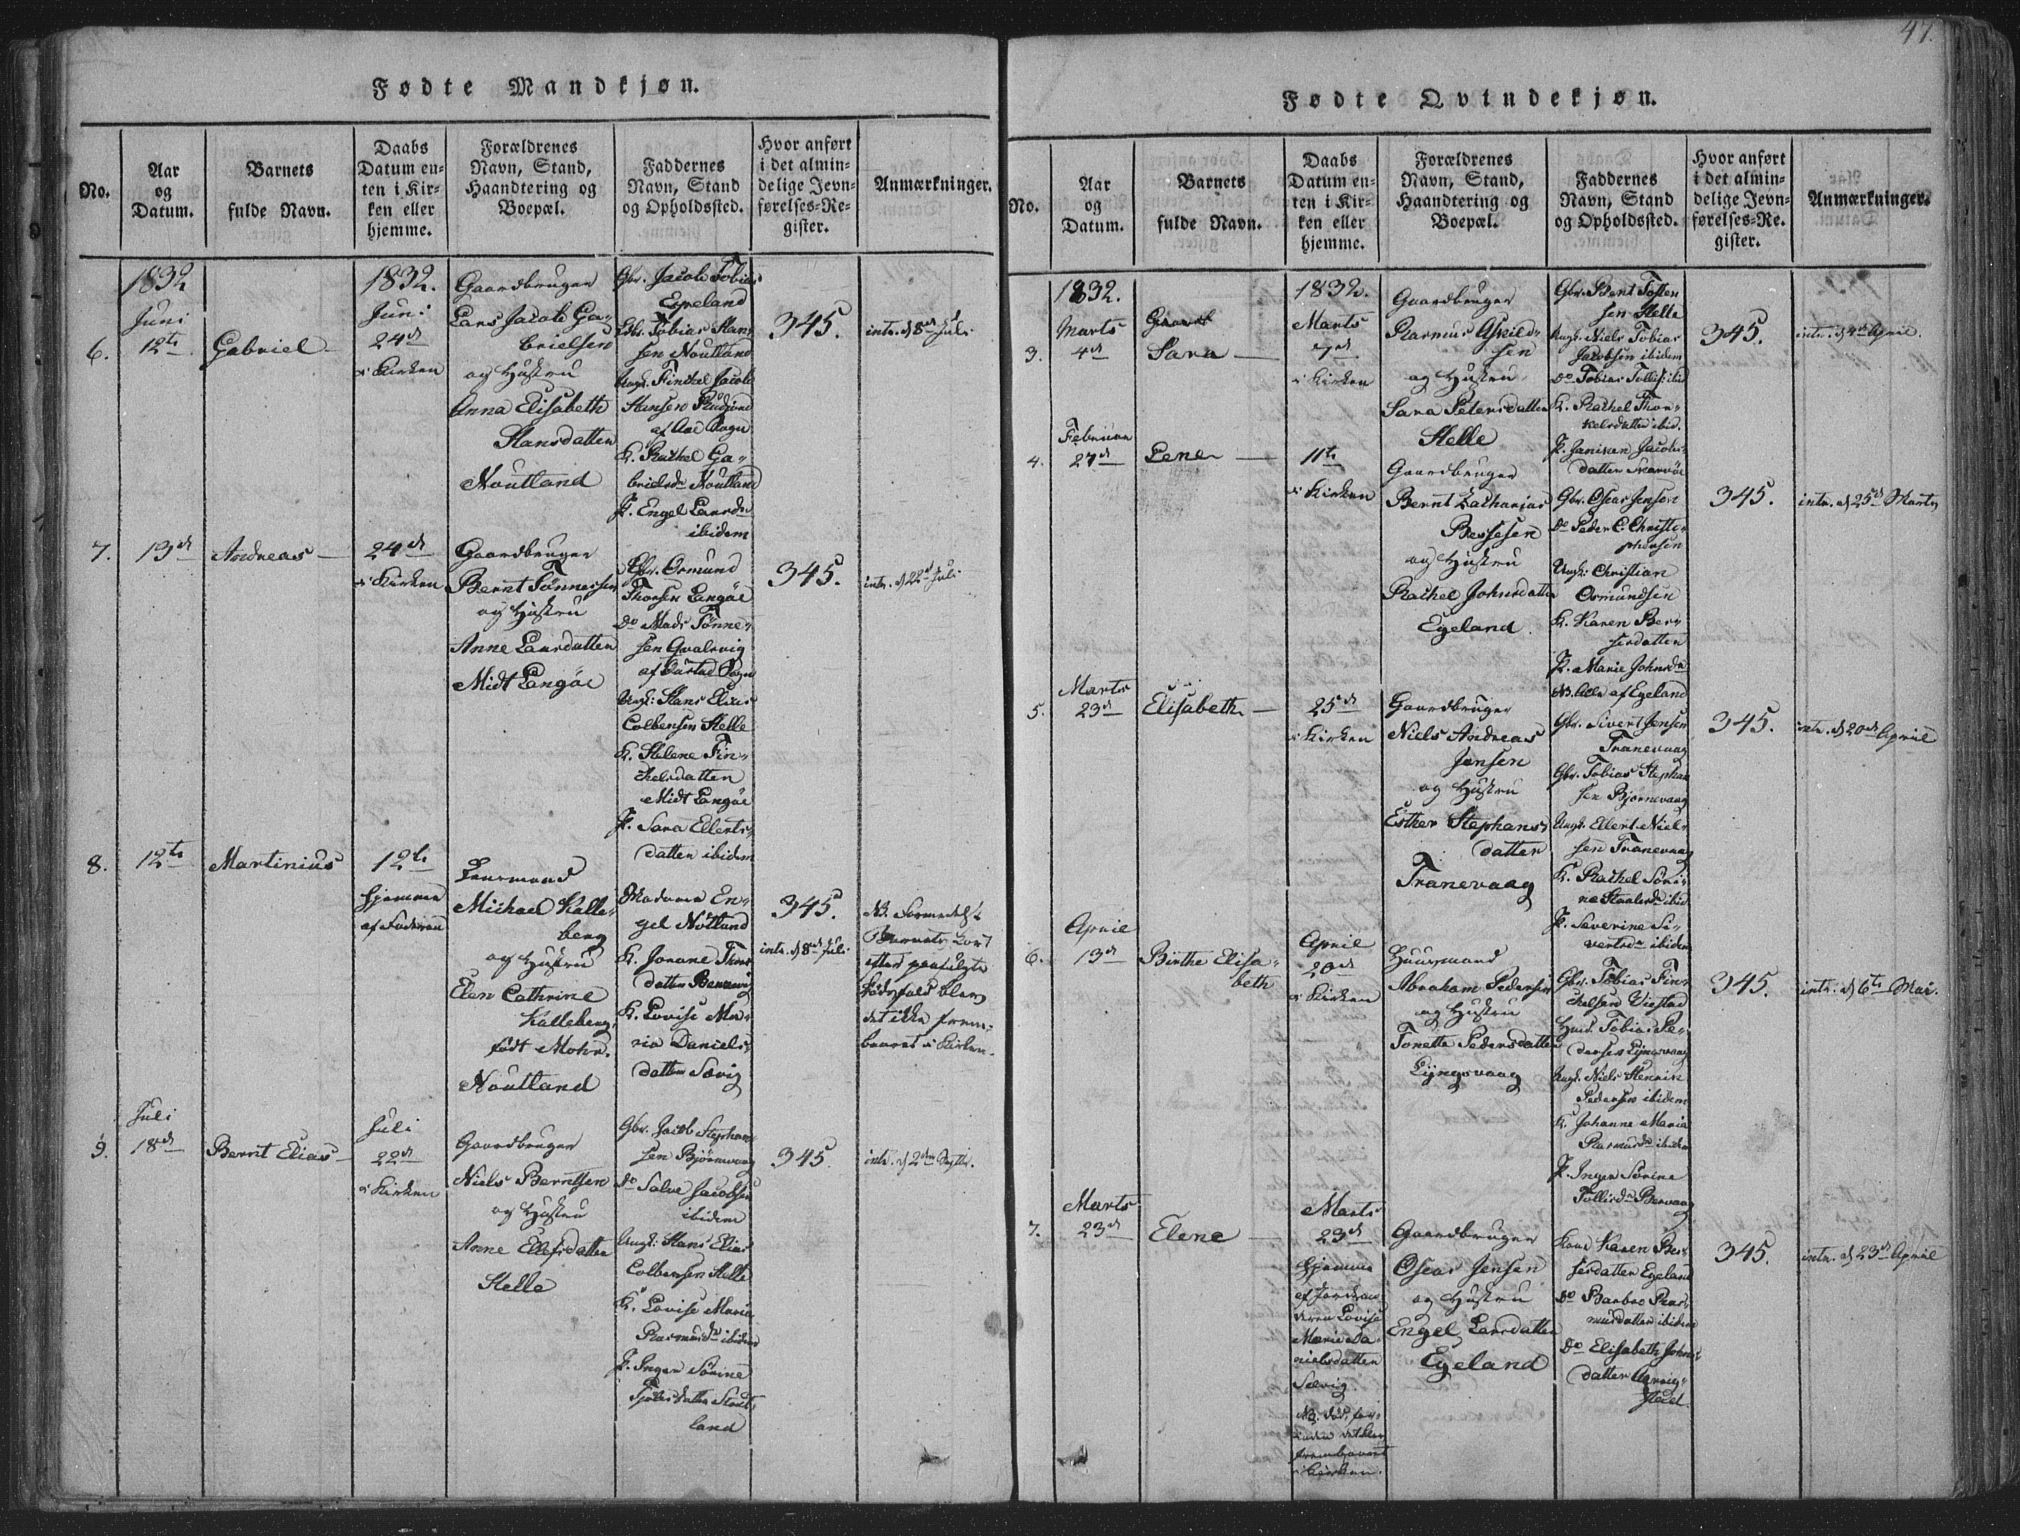 47.
Fødte Mandkjøn.
No.
Aar
og
Datum.
Barnets
fulde Navn.
Daabs
Datum en-
ten i Kir-
ken eller
hjemme.
Forældrenes
Navn, Stand,
Haandtering og
Boepæl.
Faddernes
Navn, Stand
og Opholdssted.
Hvor anført
i det almin-
delige Jevn-
førelses-Re-
gister.
Anmærkninger.
6.
1832
Juni
12te
Gabriel
1832.
Juni
24de
i Kirken
Gaardbruger
Lars Jacob Ga-
brielsen
og Hustru
Anna Elisabeth
Hansdatter
Noutland
Gbr. Jacob Tobias
Egeland
Gbr. Tobias Han-
sen Noutland
Ungk. Jacob
Hansen
af Sogn
K. Rachel Ga-
brielsdr Noutland
P. Engel Laursdr
ibidem
345.
intr. d 8de Juli
7.
13de
Andreas
24de
i Kirken
Gaardbruger
Bernt Tønnessen
og Hustru
Anne Laursdatter
Midt Langöe
Gbr. Osmund
Thorsen Langöe
Do Mads Tönne-
sen Qvalevig
af Sogn
Ungk. Hans Elias
Colbensen Helle
K. Helene Fin-
chelsdatter
Midt Langöe
P. Sara Ellerts-
datter ibidem
345.
intr. d 22de Juli
8.
12te
Martinius
12te
hjemme
af Faderen
Michael Kalle-
berg
og Hustru
Elen Cathrine
Kalleberg,
født Mohr.
Noutland
Madame En-
gel Nøtland
K. Jonane Thors-
datter
K. Lovise Ma-
ria Daniels-
datter Sævig
345.
intr. d 8de Juli
NB. Formedelst
Barnets
blev
det ikke frem-
baaret i Kirken.
9.
Juli
18de
Bernt Elias
Juli
22de
i Kirken
Gaardbruger
Niels Berntsen
og Hustru
Anne Ellefsdatter
Helle
Gbr. Jacob Stephan-
sen Bjørnevaag
Do Salve Jacobsen
ibidem
Ungk. Hans Elias
Colbensen Helle
K. Lovise Maria
Rasmusdr ibidem
P. Inger Sörine
land
345.
intr. d 2den Septbr.
Fødte Qvindekjøn.
No.
Aar
og
Datum.
Barnets
fulde Navn.
Daabs
Datum en-
ten i Kir-
ken eller
hjemme.
Forældrenes
Navn, Stand,
Haandtering og
Boepæl.
Faddernes
Navn, Stand
og Opholdssted.
Hvor anført
i det almin-
delige Jevn-
førelses-Re-
gister.
Anmærkninger.
3.
1832.
Marts
4de
Sara
1832.
Marts
7de
i Kirken
Gaardbruger
Rasmus Askild-
sen
og Hustru
Sara Petersdatter
Helle
Gbr. Bent Tosten
sen Helle
Ungk. Niels Tobias
Jacobsen ibidem
Do Tobias ibid
K. Rachel Thor-
kelsdatter ibid.
P. Janiken Jacobs-
datter
345.
intr. d 4de April.
4.
Februar
27de
Lene
11te
i Kirken
Gaardbruger
Bernt Zacharias
Bessesen
og Hustru
Rachel Johnsdatter
Egeland.
Gbr. Oscar Jensen
Do Peder C. Christo-
phersen
Ungk. Christian
Osmundsen
K. Karen Ber-
sesdatter
P. Marie Johnsdr
NB. Alle af Egeland
345.
intr. d 25de Marts
5.
Marts
23de
Elisabeth
25de
i Kirken
Gaardbruger
Niels Andreas
Jensen
og Hustru
Esther Stephans-
datter
Tranevaag
Gbr. Sivert Jensen
Tranevaag
Gbr. Tobias Stephan
sen Bjørnevaag
Ungk. Ellert Niel-
sen Tranevaag
K. Rachel Söri-
ne ibid
P. Severine Si-
vertsdr ibidem
345.
intr. d 20de April
6.
April
13de
Birthe Elisa-
beth
April
20de
i Kirken
Huusmand
Abraham Pedersen
og Hustru
Tonette Pedersdatter
Lyngsvaag
Gbr. Tobias Fin-
chelsen Vigstad
Huus. Tobias Pe-
dersen Lyngsvaag
Ungk. Niels Henrik
Pedersen ibidem
K. Johanne Maria
Rasmusdr ibidem
P. Inger Sörine
Tollisdr
345.
intr. d 6te Mai.
7.
Marts
23de
Elene
Marts
23de
hjemme
af Jordmo-
deren Lovise
Marie Da-
nielsdatter
Sævig.
i Kirken.
Gaardbruger
Oscar Jensen
og Hustru
Engel Larsdatter
Egeland
Kone Karen Ber-
sesdatter Egeland
Do Barbro Ras-
musdatter ibidem
Do Elisabeth Johns-
datter
345.
intr. d 23de April